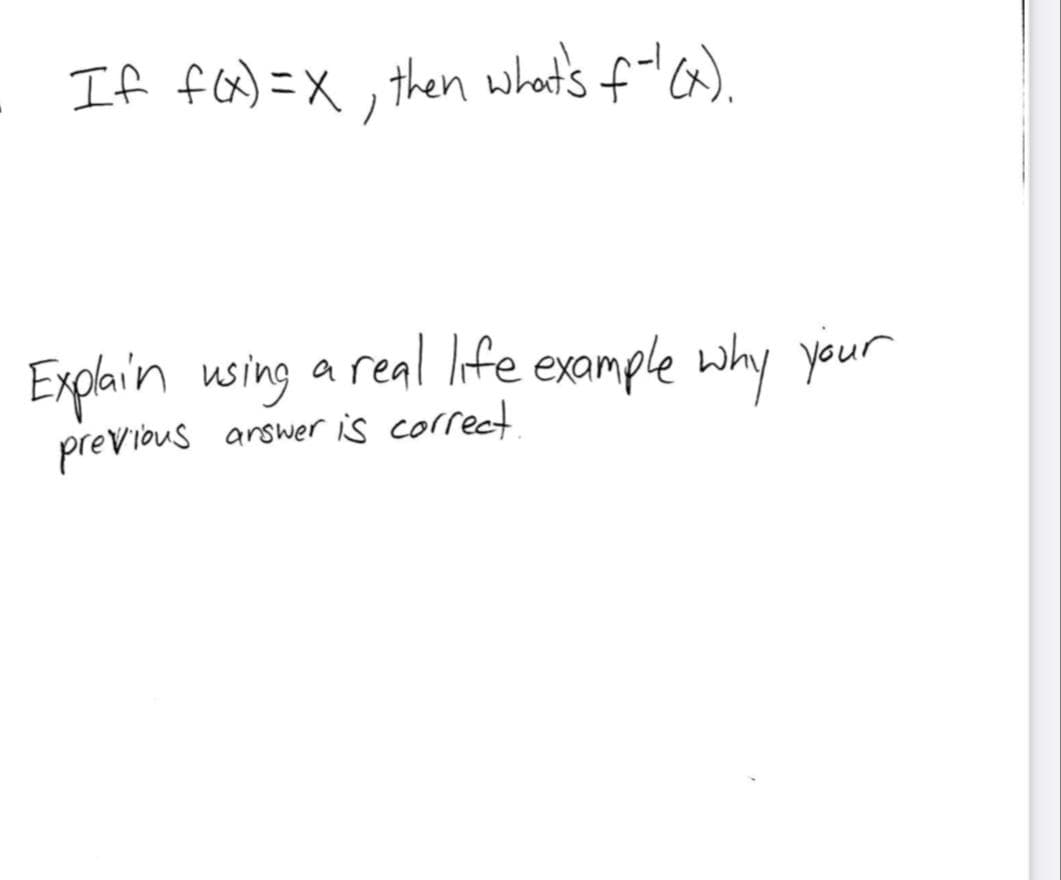 If f(x) = x , then what's f⁻¹(x).
Explain using a real life example why your
previous answer is correct.